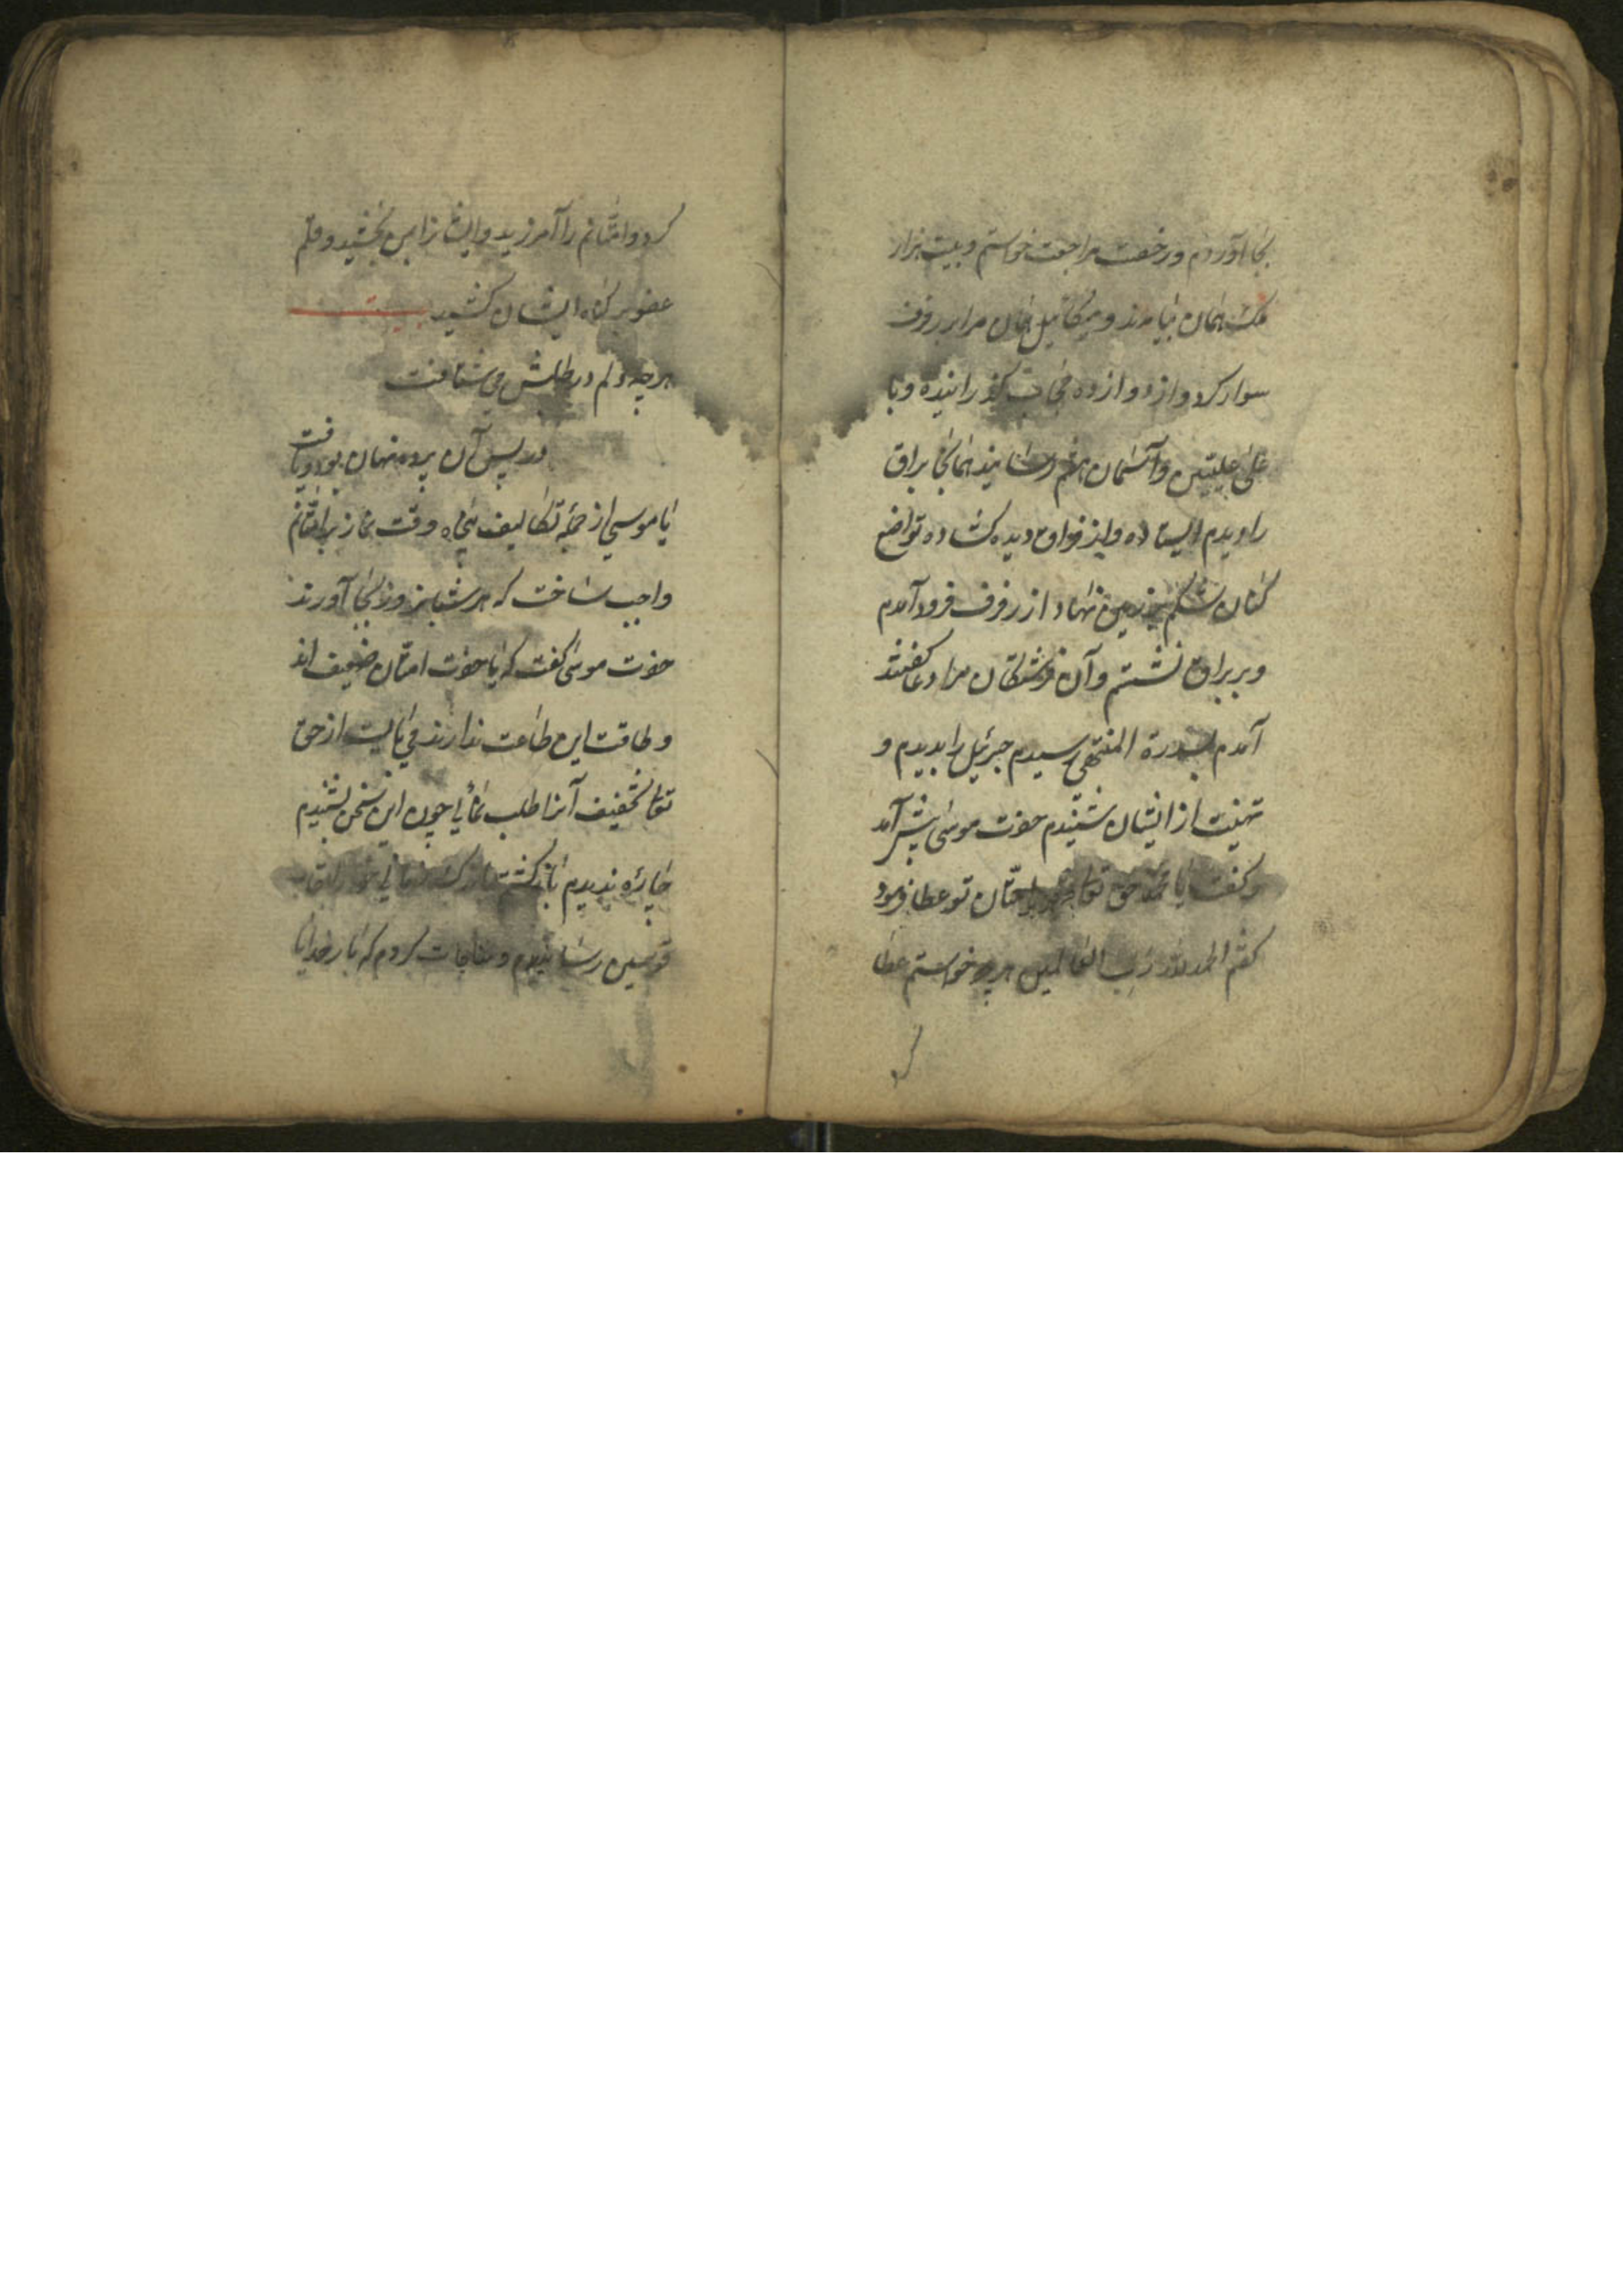 بجا آوردم و رخصت مراجعت خواستم و بیست هزار
ملک همان بیامدند و میکائیل همان مرا بر رفرف
سوار کرد و از دوازده حجاب گذرانیده و با
علی علیین و آسمان هفتم رسانیدند همانجا براق
را دیدم ایستاده و از فراق دیده کشاده تواضع
کنان شکم بر زمین نهاد از رفرف فرود آمدم
و بر براق نشستم و آن فرشتکان مرا دعا کفتند
آمدم بسدرة المنتهی رسیدم جبرئیل را بدیدم و
تهنیت از ایشان شنیدم حضرت موسی پیش آمد
و کفت یا محمد حق تعا چه بامتان تو عطا فرمود
کفتم الحمد لله رب العالمین هر چه خواستم عطا
کر
کرد و امتانم را آمرزید و ایشانرا بمن بخشید و قلم
عفو بر کناه ایشان کشید بیت
هر چه دلم در طلبش می شتافت
در پس آن پرده نهان بود و یافت
یا موسی از جمله تکالیف پنجاه وقت نماز بر امتانم
واجب ساخت که هر شبانروز بجا آورند
حضرت موسی کفت که یا حضرت امتان ضعیف اند
و طاقت این طاعت ندارند می بایست از حق
تعا تخفیف آنرا طلب نمائی چون این سخن بشنیدم
چاره ندیدم باز کشتم
قوسین رسانیدم و مناجات کردم که بار خدایا